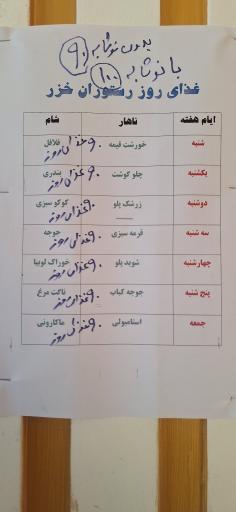 بدون نوشابه ۹۰
با نوشابه ۱۰۰
غذای روز رستوران خزر
ایام هفته ناهار شام
شنبه خورشت قیمه فلافل و غذای روز
یکشنبه چلو گوشت بندری و غذای روز
دوشنبه زرشک پلو کوکو سبزی و غذای روز
سه شنبه قرمه سبزی جوجه و غذای روز
چهارشنبه شوید پلو خوراک لوبیا و غذای روز
پنج شنبه جوجه کباب ناگت مرغ و غذای روز
جمعه استامبولی ماکارونی و غذای روز